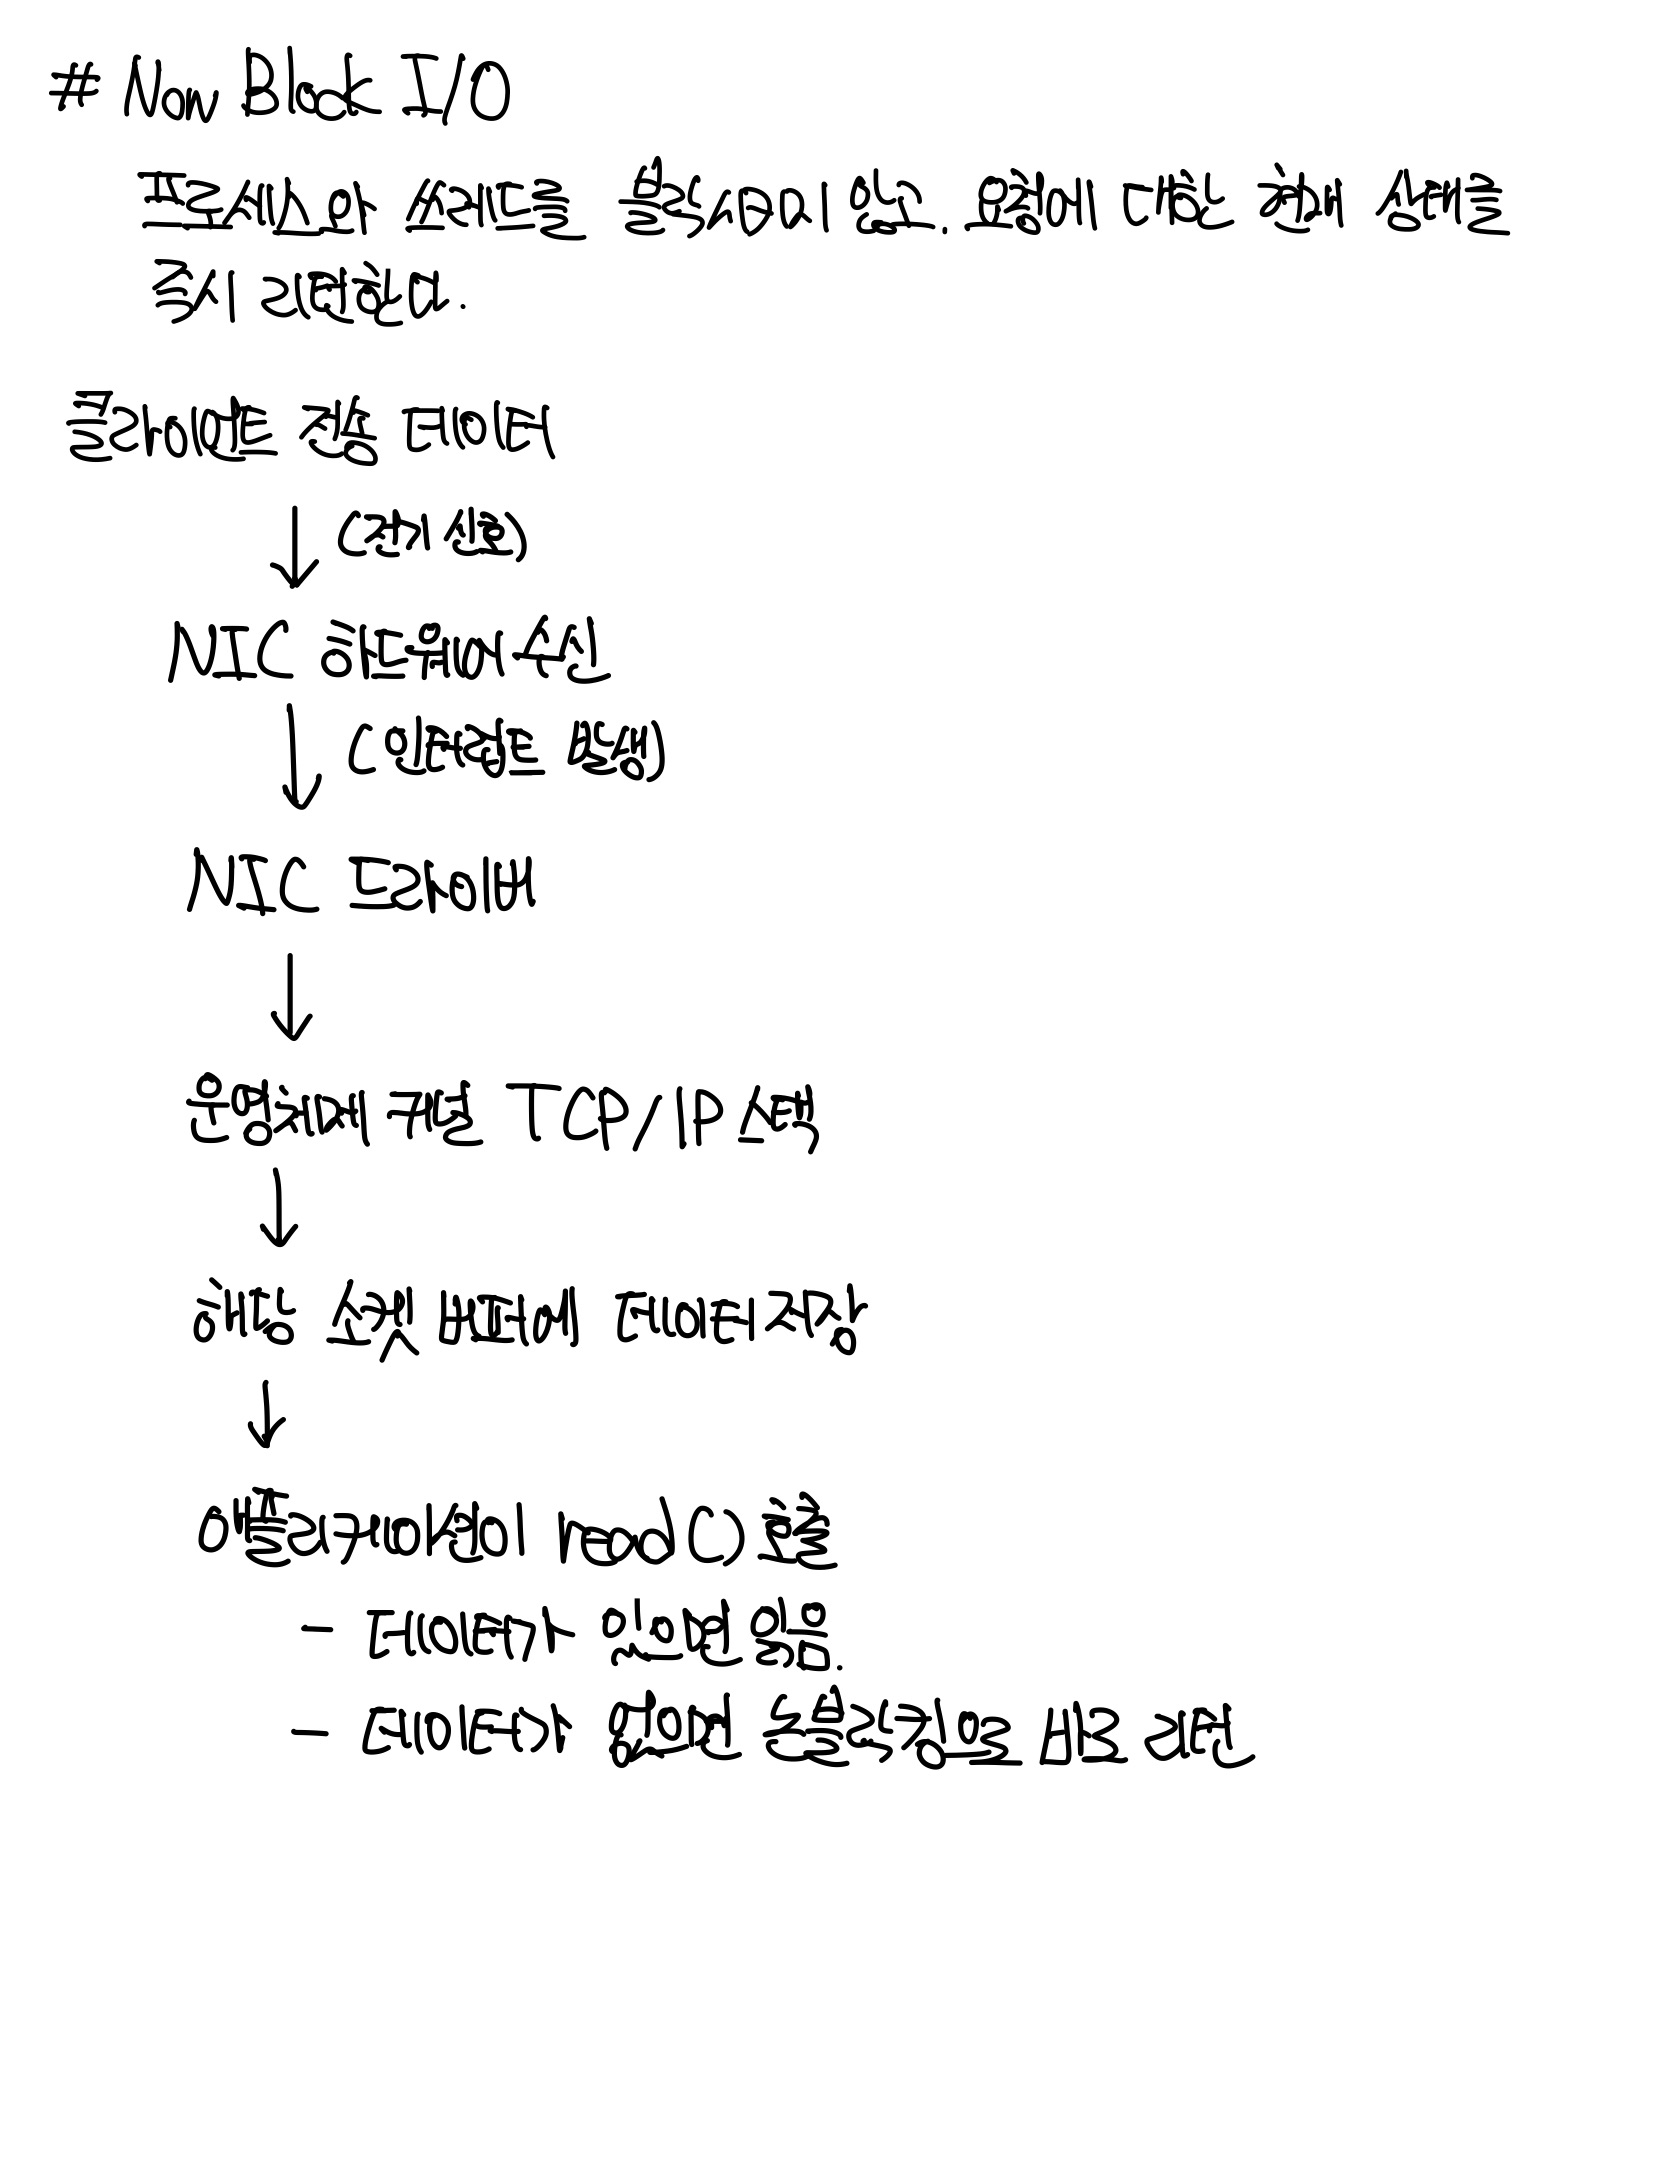 # Non Block I/O
프로세스와 쓰레드를 블락시키지 않고. 요청에 대한 현재 상태를
즉시 리턴한다.
클라이언트 전송 데이터
↓ (전기 신호)
NIC 하드웨어 수신
↓ (인터럽트 발생)
NIC 드라이버
↓
운영체제 커널 TCP/IP 스택
↓
해당 소켓 버퍼에 데이터 저장
↓
애플리케이션이 read() 호출
- 데이터가 있으면 읽음.
- 데이터가 없으면 논블락킹으로 바로 리턴